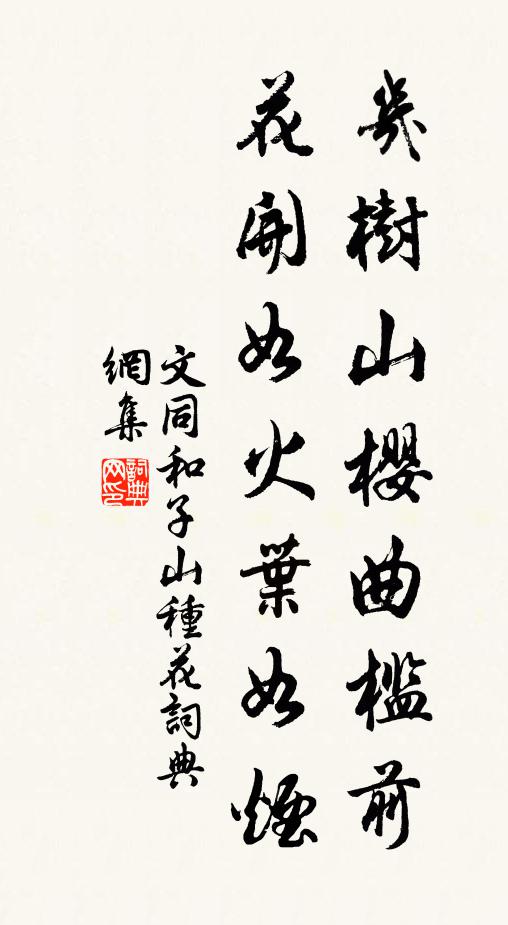 幾樹山櫻曲檻前
花開如火葉如煙
文同和子山種花詞典
網集
詞典網印